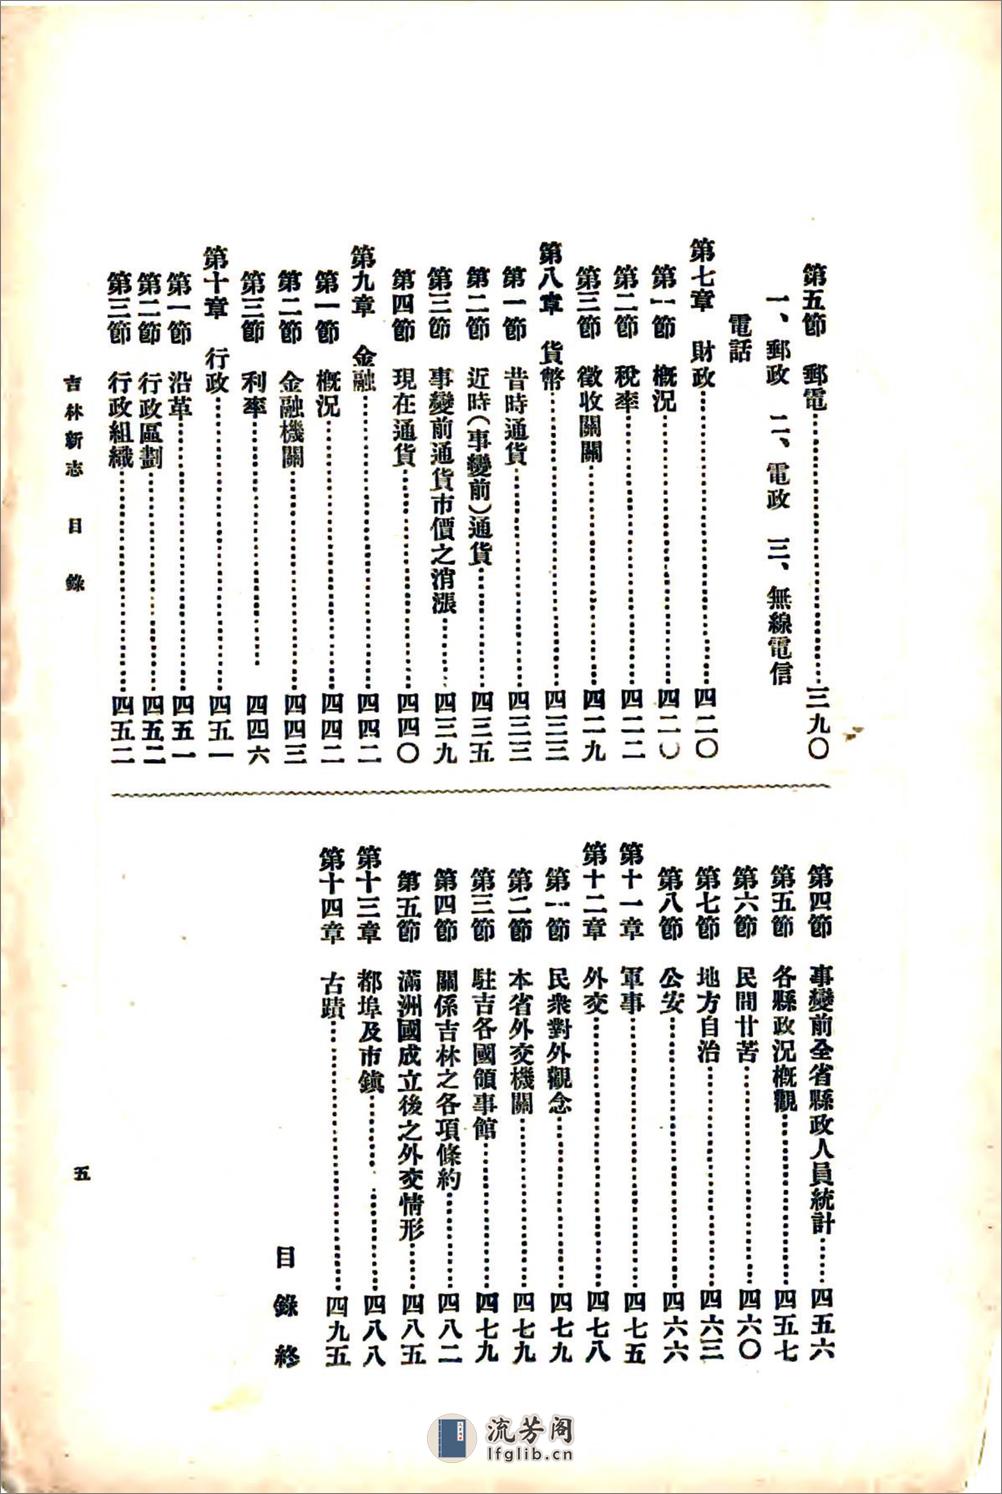 第五節　郵電……三九〇
一、郵政　二、電政　三、無線電信
電話
第七章　財政……四二〇
第一節　概況……四二〇
第二節　稅率……四二二
第三節　徵收關關……四二九
第八章　貨幣……四三三
第一節　昔時通貨……四三三
第二節　近時(事變前)通貨……四三五
第三節　事變前通貨市價之消漲……四三九
第四節　現在通貨……四四〇
第九章　金融……四四二
第一節　概況……四四二
第二節　金融機關……四四三
第三節　利率……四四六
第十章　行政……四五一
第一節　沿革……四五一
第二節　行政區劃……四五二
第三節　行政組織……四五二
第四節　事變前全省縣政人員統計……四五六
第五節　各縣政況概觀……四五七
第六節　民間甘苦……四六〇
第七節　地方自治……四六三
第八節　公安……四六六
第十一章　軍事……四七五
第十二章　外交……四七八
第一節　民衆對外觀念……四七九
第二節　本省外交機關……四七九
第三節　駐吉各國領事館……四七九
第四節　關係吉林之各項條約……四八二
第五節　滿洲國成立後之外交情形……四八五
第十三章　都埠及市鎮……四八八
第十四章　古蹟……四九五
目錄終
吉林新志　目錄
五
流芳阁
lfglib.cn